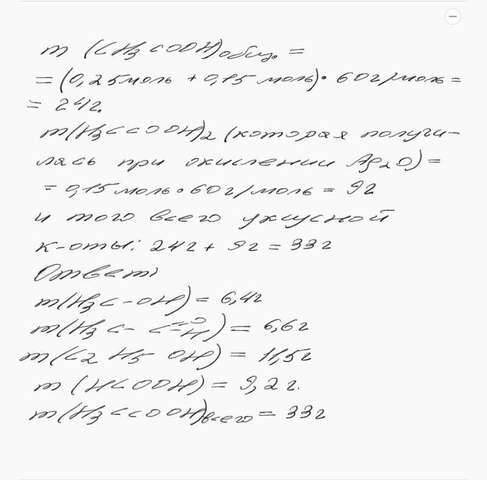 m (CH3COOH)общ. =
= (0,25моль + 0,15 моль)• 60г/моль =
= 24г.
m(H3CCOOH)2 (которая получи-
лась при окислении Ag2O) =
= 0,15 моль • 60 г/моль = 9г
и того всего уксусной
к-оты: 24г + 9г = 33г
Ответ:
m(H3C-OH) = 6,4г
m(H3C-C=O-H) = 6,6г
m(C2H5OH) = 11,5г
m (HCOOH) = 9,2г.
m(H3CCOOH)всего = 33г